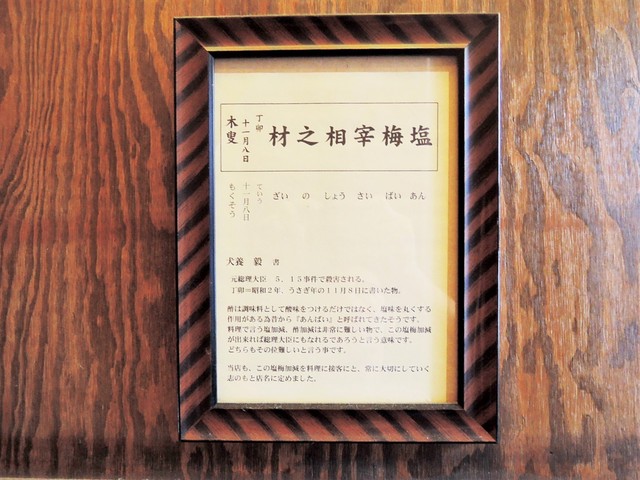 塩梅宰相之材
丁卯
十一月八日
木叟
あん ばい さい しょう の ざい
ていう
十一月八日
もくそう
犬養 毅 書
元総理大臣 5．15事件で殺害される。
丁卯＝昭和2年、うさぎ年の11月8日に書いた物。
酢は調味料として酸味をつけるだけではなく、塩味を丸くする
作用がある為昔から『あんばい』と呼ばれてきたそうです。
料理で言う塩加減、酢加減は非常に難しい物で、この塩梅加減
が出来れば総理大臣にもなれるであろうと言う意味です。
どちらもその位難しいと言う事です。
当店も、この塩梅加減を料理に接客にと、常に大切にしていく
志のもと店名に定めました。